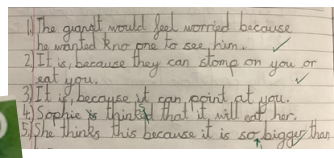 1) The giant would feel worried because
he wanted kno one to see him.
2) It is, because they can stomp on you or
eat you.
3) It is, because it can point at you.
4) Sophie is thinks that it will eat her.
5) She thinks this because it is so bigger than